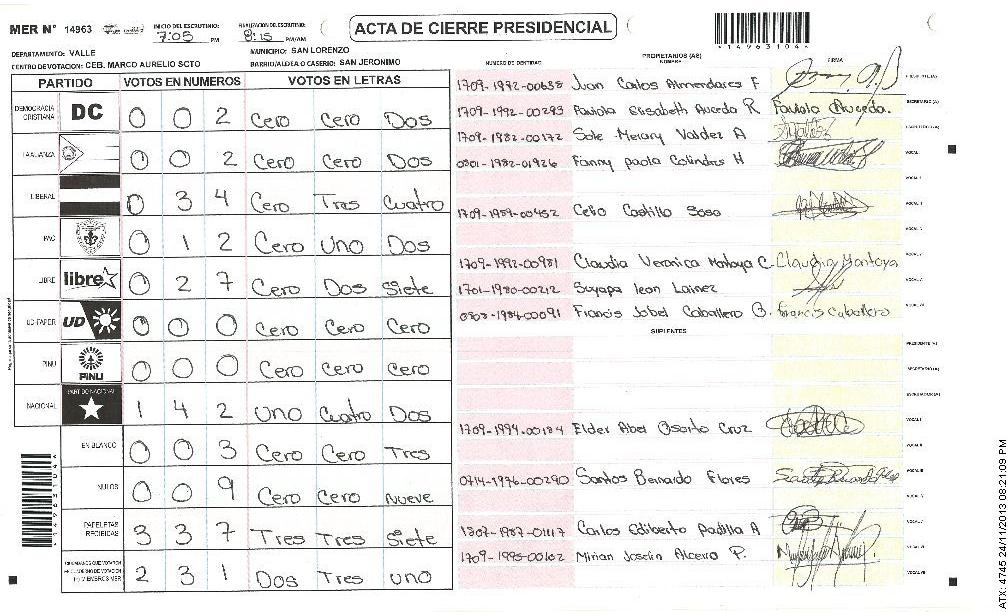 MER N° 14963
INICIO DEL ESCRUTINIO: 7:05 PM
FINALIZACION DEL ESCRUTINIO: 8:15 PM/AM
ACTA DE CIERRE PRESIDENCIAL
*14963104*
DEPARTAMENTO: VALLE
MUNICIPIO: SAN LORENZO
CENTRO DE VOTACION: CEB. MARCO AURELIO SOTO
BARRIO/ALDEA O CASERIO: SAN JERONIMO
PARTIDO VOTOS EN NUMEROS VOTOS EN LETRAS
DEMOCRACIA CRISTIANA DC 0 0 2 Cero Cero Dos
LA ALIANZA 0 0 2 Cero Cero Dos
LIBERAL 0 3 4 Cero Tres Cuatro
PAC 0 1 2 Cero Uno Dos
LIBRE libre 0 2 7 Cero Dos Siete
UD-FAPER UD 0 0 0 Cero Cero Cero
PINU PINU 0 0 0 Cero Cero Cero
NACIONAL PARTIDO NACIONAL 1 4 2 Uno Cuatro Dos
EN BLANCO 0 0 3 Cero Cero Tres
NULOS 0 0 9 Cero Cero Nueve
PAPELETAS RECIBIDAS 3 3 7 Tres Tres Siete
2 3 1 Dos Tres Uno
NUMERO DE IDENTIDAD PROPIETARIOS (AS) NOMBRE FIRMA
1709-1992-00638 Juan Carlos Almendares F PRESIDENTE (A)
1709-1992-00293 Paviola Elisabeth Aucedo R Paviola Aucedo. SECRETARIO (A)
1709-1982-00172 Sole Merary Valdez A ESCRUTADOR (A)
0801-1982-01926 Fanny paola Colindres H VOCAL I
VOCAL II
1709-1989-00452 Celio Castillo Sosa VOCAL III
1709-1992-00981 Claudia Veronica Montoya C. Claudia Montoya VOCAL V
1701-1980-00212 Suyapa leon Lainez
0803-1984-00091 Francis Isbel Caballero B. Francis Caballero
SUPLENTES
PRESIDENTE (A)
SECRETARIO (A)
ESCRUTADOR (A)
1709-1994-00184 Elder Abel Osorto Cruz VOCAL I
VOCAL II
0714-1976-00290 Santos Bernardo Flores VOCAL III
1807-1987-01117 Carlos Ediberto Padilla A VOCAL V
1709-1993-00102 Mirian Joselin Alcerro P. VOCAL VI
VOCAL VII
ATX: 4745 24/11/2013 08:21:09 PM